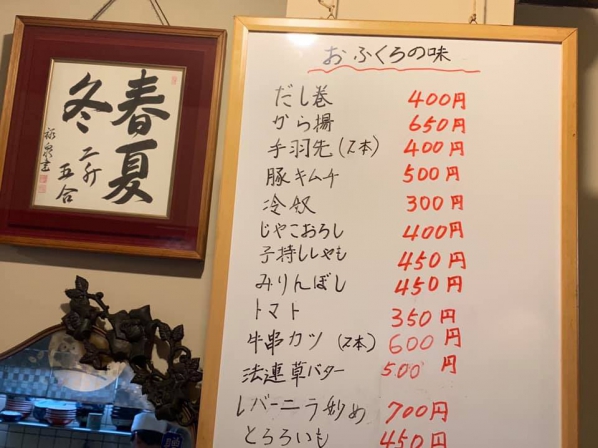 春夏
冬
二升
五合
おふくろの味
だし巻 400円
から揚 650円
手羽先(2本) 400円
豚キムチ 500円
冷奴 300円
じゃこおろし 400円
子持ししゃも 450円
みりんぼし 450円
トマト 350円
牛串カツ(2本) 600円
法連草バター 500円
レバーニラ炒め 700円
とろろいも 450円